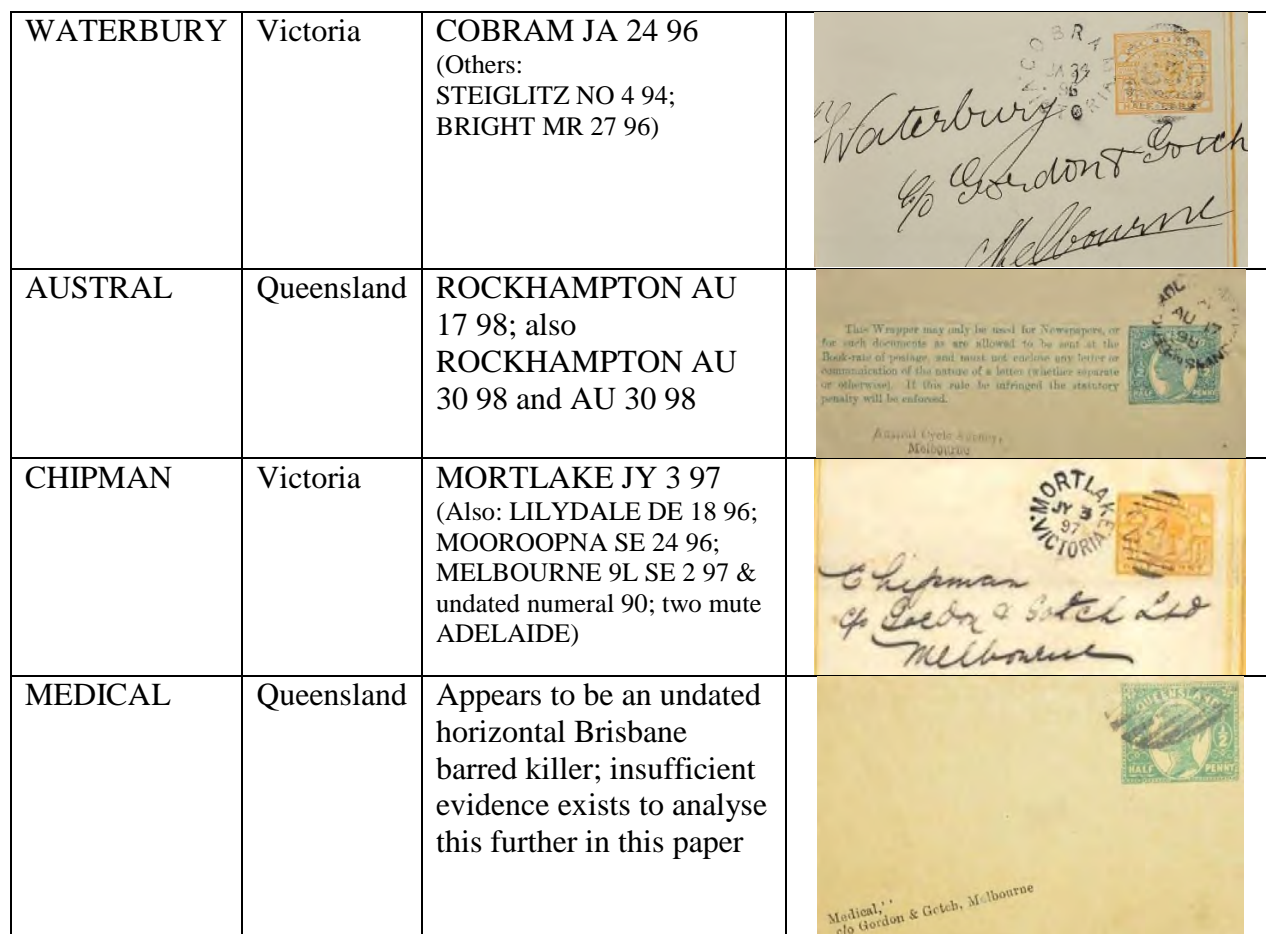 WATERBURY
Victoria
COBRAM JA 24 96
(Others:
STEIGLITZ NO 4 94;
BRIGHT MR 27 96)
COBRA
JA 24
96
HALF PENNY
Waterbury
c/o Gordon & Gotch
Melbourne
AUSTRAL
Queensland
ROCKHAMPTON AU
17 98; also
ROCKHAMPTON AU
30 98 and AU 30 98
This Wrapper may only be used for Newspapers, or
for such documents as are allowed to be sent at the
Book-rate of postage, and must not enclose any letter or
communication of the nature of a letter (whether separate
or otherwise). If this rule be infringed the statutory
penalty will be enforced.
AU 17
98
HALF PENNY
Austral Cycle Agency,
Melbourne
CHIPMAN
Victoria
MORTLAKE JY 3 97
(Also: LILYDALE DE 18 96;
MOOROOPNA SE 24 96;
MELBOURNE 9L SE 2 97 &
undated numeral 90; two mute
ADELAIDE)
MORTLAKE
JY 3
97
VICTORIA
Chipman
c/o Gordon & Gotch Ltd
Melbourne
MEDICAL
Queensland
Appears to be an undated
horizontal Brisbane
barred killer; insufficient
evidence exists to analyse
this further in this paper
QUEENSLAND
½
HALF PENNY
Medical,''
c/o Gordon & Gotch, Melbourne